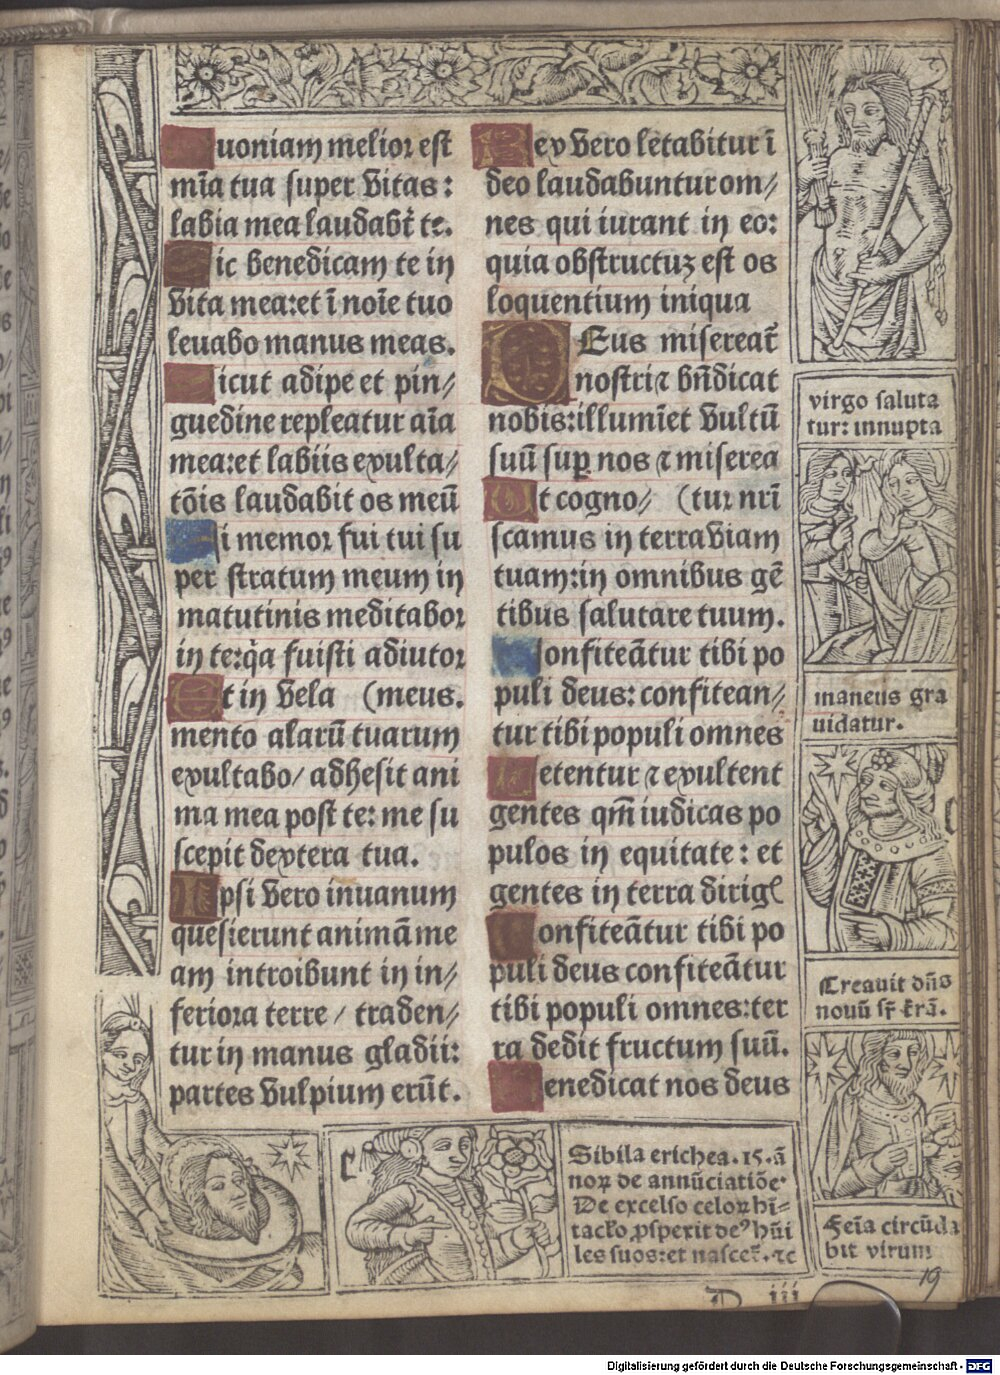 Quoniam melior est
mīa tua super vitas:
labia mea laudabt̄ te.
Sic benedicam te in
vita mea:et ī noīe tuo
leuabo manus meas.
Sicut adipe et pin/
guedine repleatur aīa
mea:et labiis exulta/
tōis laudabit os meū
Si memor fui tui su
per stratum meum in
matutinis meditabor
in te:q̄a fuisti adiutor
Et in vela (meus.
mento alarū tuarum
exultabo/ adhesit ani
ma mea post te: me su
scepit dextera tua.
Ipsi vero inuanum
quesierunt animā me
am introibunt in in/
feriora terre / traden/
tur in manus gladii:
partes vulpium erūt.
Rex vero letabitur ī
deo laudabuntur om/
nes qui iurant in eo:
quia obstructuꝫ est os
loquentium iniqua
DEus misereat̄
nostri⁊ bn̄dicat
nobis:illumīet vultū
suū suꝑ nos ⁊ miserea
Ut cogno/ (tur nrī
scamus in terra viam
tuam:in omnibus gē
tibus salutare tuum.
Confiteātur tibi po
puli deus: confitean/
tur tibi populi omnes
Letentur ⁊ exultent
gentes qm̄ iudicas po
pulos in equitate: et
gentes in terra dirigꝭ
Confiteātur tibi po
puli deus confiteātur
tibi populi omnes:ter
ra dedit fructum suū.
Benedicat nos deus
virgo saluta
tur: innupta
manens gra
uidatur.
Creauit dn̄s
nouū sr̄ t̄rā.
Feīa circūda
bit virum
Sibila erichea.15.ā
noꝝ de annūciatiōe.
De excelso celoꝝ hī=
tac̄lo ꝓsperit deꝰ hūi
les suos:et nascet̄.⁊c
19
D iii
Digitalisierung gefördert durch die Deutsche Forschungsgemeinschaft - DFG